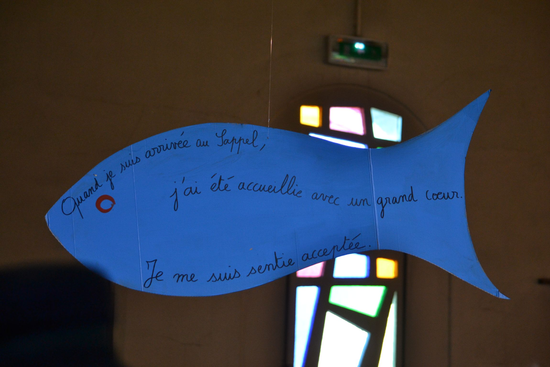 Quand je suis arrivée au Sappel,
j'ai été accueillie avec un grand cœur.
Je me suis sentie acceptée.